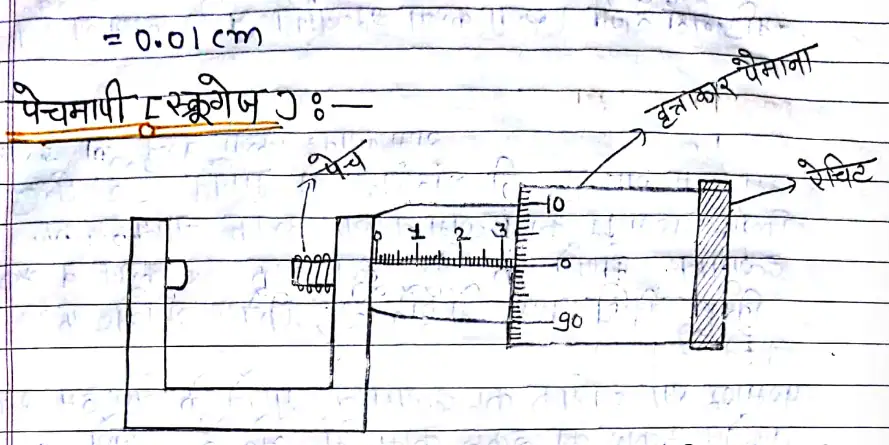 = 0.01 cm
पेचमापी [स्क्रूगेज) :—
वृत्ताकार पैमाना
पेच
रेचिट
10
0 1 2 3
0
90